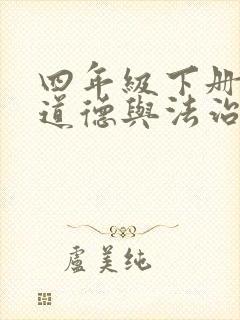 四年級下册
道德與法治
盧美純